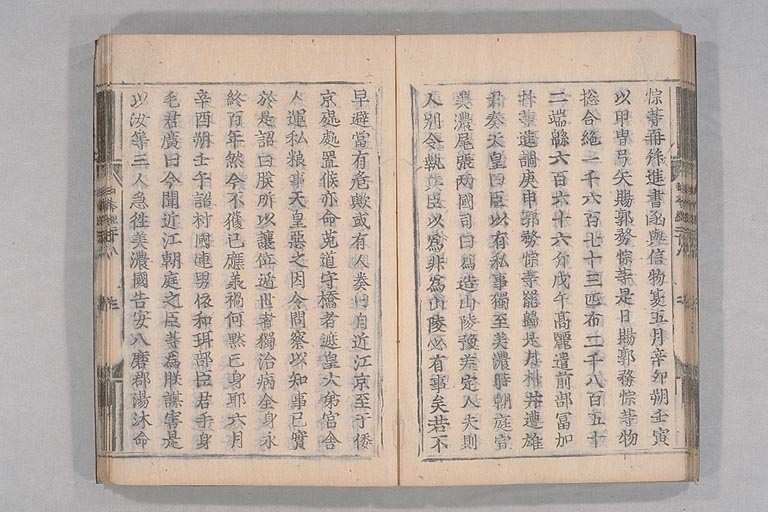 悰等再拜進書函與信物夏五月辛卯朔壬寅
以甲冑弓矢賜郭務悰等是日賜郭務悰等物
揔合絁一千六百七十三匹布二千八百五十
二端緜六百六十六斤戊午高麗遣前部富加
抃等進調庚申郭務悰等罷歸是月朴井連雄
君奏天皇曰臣以有私事獨至美濃時朝庭宣
美濃尾張兩國司曰為造山陵豫差定人夫則
人別令執兵臣以為非為山陵必有事矣若不
早避當有危歟或有人奏曰自近江京至于倭
京處處置候亦命菟道守橋者遮皇大弟宮舍
人運私粮事天皇惡之因令問察以知事已實
於是詔曰朕所以讓位遁世者獨治病全身永
終百年然今不獲已應羕禍何黙亡身耶六月
辛酉朔壬午詔村國連男依和珥部臣君手身
毛君廣曰今聞近江朝庭之臣等為朕謀害是
以汝等三人急往美濃國告安八磨郡湯沐命